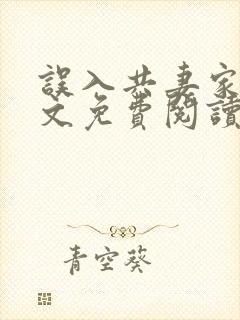 誤入共妻家
文免費閱讀
青空葵